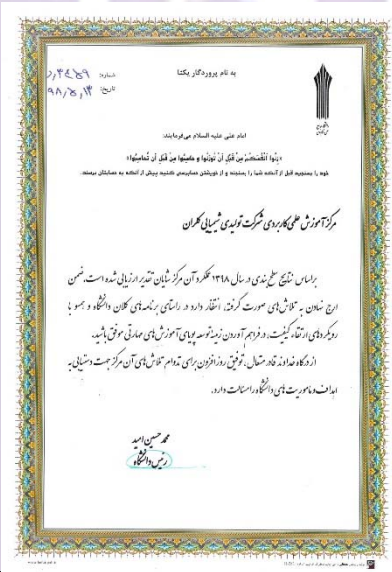 به نام پروردگار یکتا
شماره:
تاریخ: ۹۸,۵,۱۳
امام علی علیه السلام می‌فرمایند:
«زِنُوا أَنْفُسَكُمْ مِنْ قَبْلِ أَنْ تُوزَنُوا وَ حَاسِبُوا مِنْ قَبْلِ أَنْ تُحَاسَبُوا»
خود را بسنجید قبل از آنکه شما را بسنجند و از خویشتن حسابرسی کنید پیش از آنکه به حسابتان برسند.
مرکز آموزش علمی کاربردی شرکت تولیدی شیمیایی کلران
براساس نتایج سطح بندی در سال ۱۳۹۸ عملکرد آن مرکز شایان تقدیر ارزیابی شده است، ضمن
ارج نهادن به تلاش های صورت گرفته، انتظار دارد در راستای برنامه های کلان دانشگاه و همسو با
رویکردهای ارتقاء کیفیت، در فراهم آوردن زمینه توسعه پویای آموزش های مهارتی موفق باشید.
از درگاه خداوند قادر متعال، توفیق روزافزون برای تداوم تلاش های آن مرکز جهت دستیابی به
اهداف و ماموریت های دانشگاه را مسالت دارد.
محمد حسین امید
رئیس دانشگاه